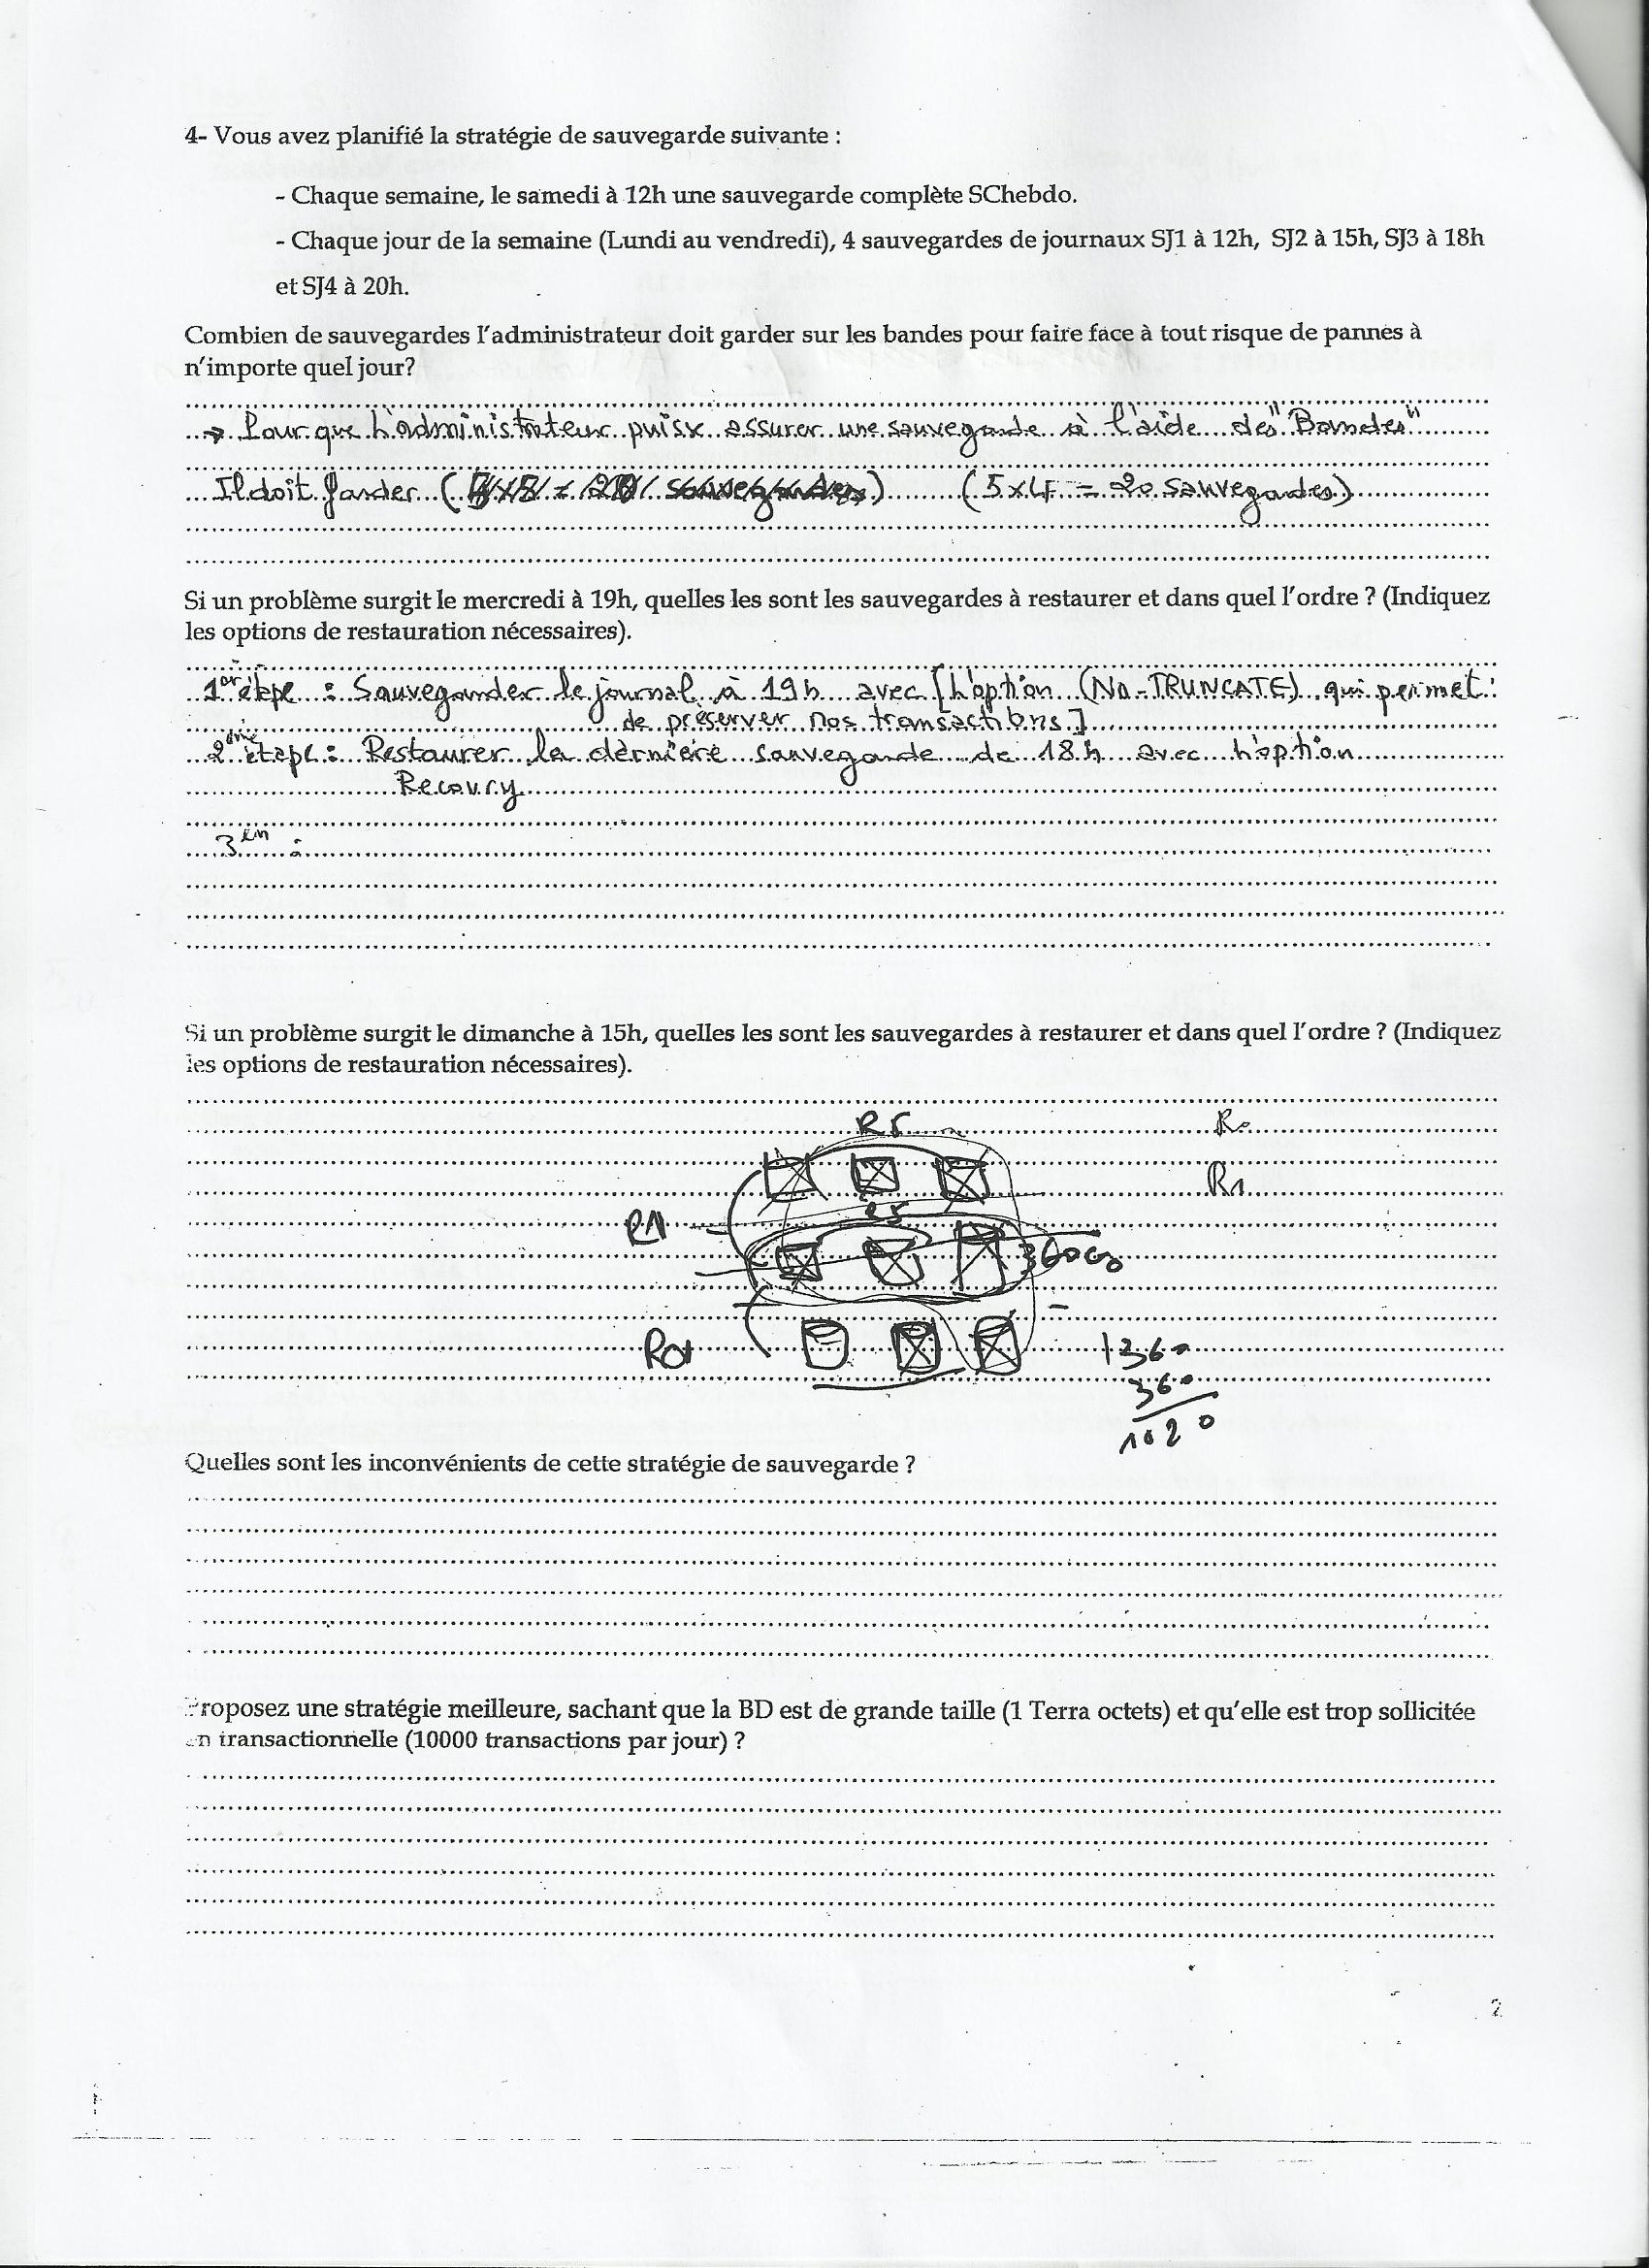 4- Vous avez planifié la stratégie de sauvegarde suivante :
- Chaque semaine, le samedi à 12h une sauvegarde complète SChebdo.
- Chaque jour de la semaine (Lundi au vendredi), 4 sauvegardes de journaux SJ1 à 12h, SJ2 à 15h, SJ3 à 18h
et SJ4 à 20h.
Combien de sauvegardes l'administrateur doit garder sur les bandes pour faire face à tout risque de pannes à
n'importe quel jour?
→ Pour que l'administrateur puisx assurer une sauvegarde à l'aide des "Bandes"
Il doit garder ( ) (5x4 = 20 sauvegardes)
Si un problème surgit le mercredi à 19h, quelles les sont les sauvegardes à restaurer et dans quel l'ordre ? (Indiquez
les options de restauration nécessaires).
1er étape : Sauvegarder le journal à 19h avec [l'option (No-TRUNCATE) qui permet :
de préserver nos transactions.]
2ème étape : Restaurer la dernière sauvegarde de 18h avec l'option
Recovry
3em :
Si un problème surgit le dimanche à 15h, quelles les sont les sauvegardes à restaurer et dans quel l'ordre ? (Indiquez
les options de restauration nécessaires).
R5 R0
R1
R1
1360
360
1020
Quelles sont les inconvénients de cette stratégie de sauvegarde ?
Proposez une stratégie meilleure, sachant que la BD est de grande taille (1 Terra octets) et qu'elle est trop sollicitée
en transactionnelle (10000 transactions par jour) ?
2